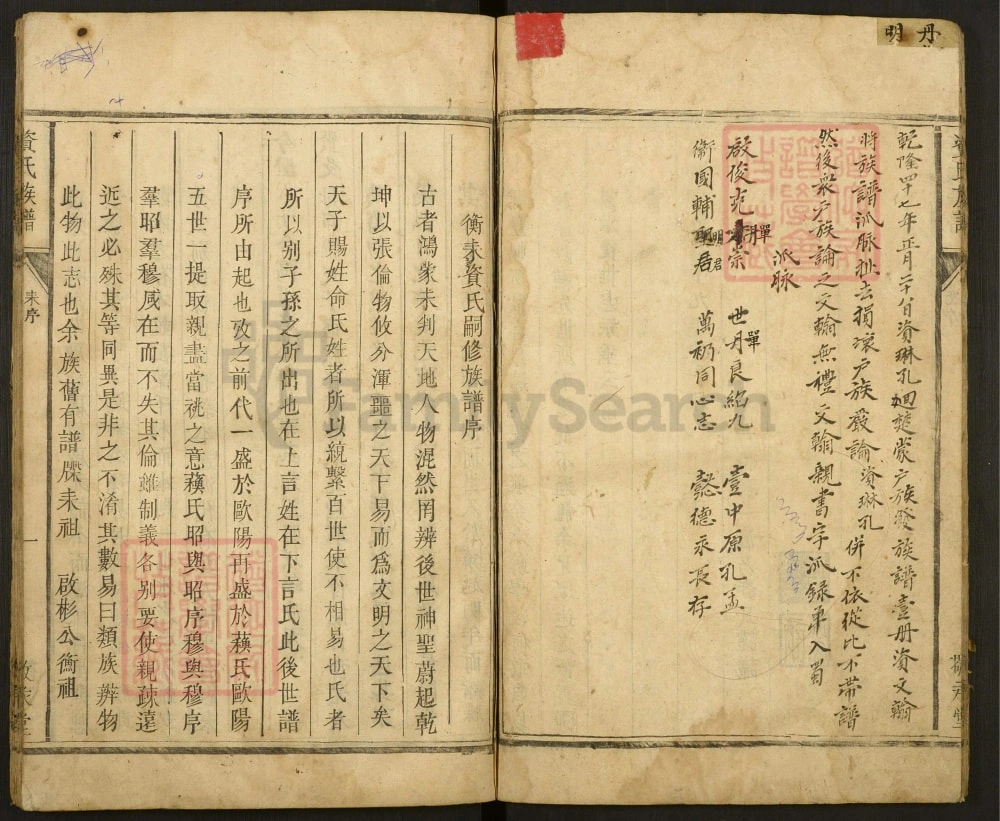 丹
明
乾隆四十七年正月二十日資琳孔迴楚蒙户族發族譜壹册資文翰
將族譜派脈扯去損壞户族嚴論資琳孔併不依從比不帶譜
然後衆户族論之文翰無禮文翰親書字派録单入蜀
派脉
啟俊克崇 世丹良紹九 壹中原孔孟
單 明 單
衛國輔聖君 萬礽同心志 懿德永長存
明君
資氏族譜
耒序
一
敦本堂
衡耒資氏嗣修族譜序
古者鴻蒙未判天地人物混然罔辨後世神聖蔚起乾
坤以張倫物攸分渾噩之天下易而爲文明之天下矣
天子賜姓命氏姓者所以統繫百世使不相易也氏者
所以别子孫之所出也在上言姓在下言氏此後世譜
序所由起也攷之前代一盛於歐陽再盛於蘓氏歐陽
五世一提取親盡當祧之意蘓氏昭與昭序穆與穆序
羣昭羣穆咸在而不失其倫雖制義各别要使親疎遠
近之必殊其等同異是非之不淆其數易曰類族辨物
此物此志也余族舊有譜牒耒祖 啟彬公衡祖
FamilySearch